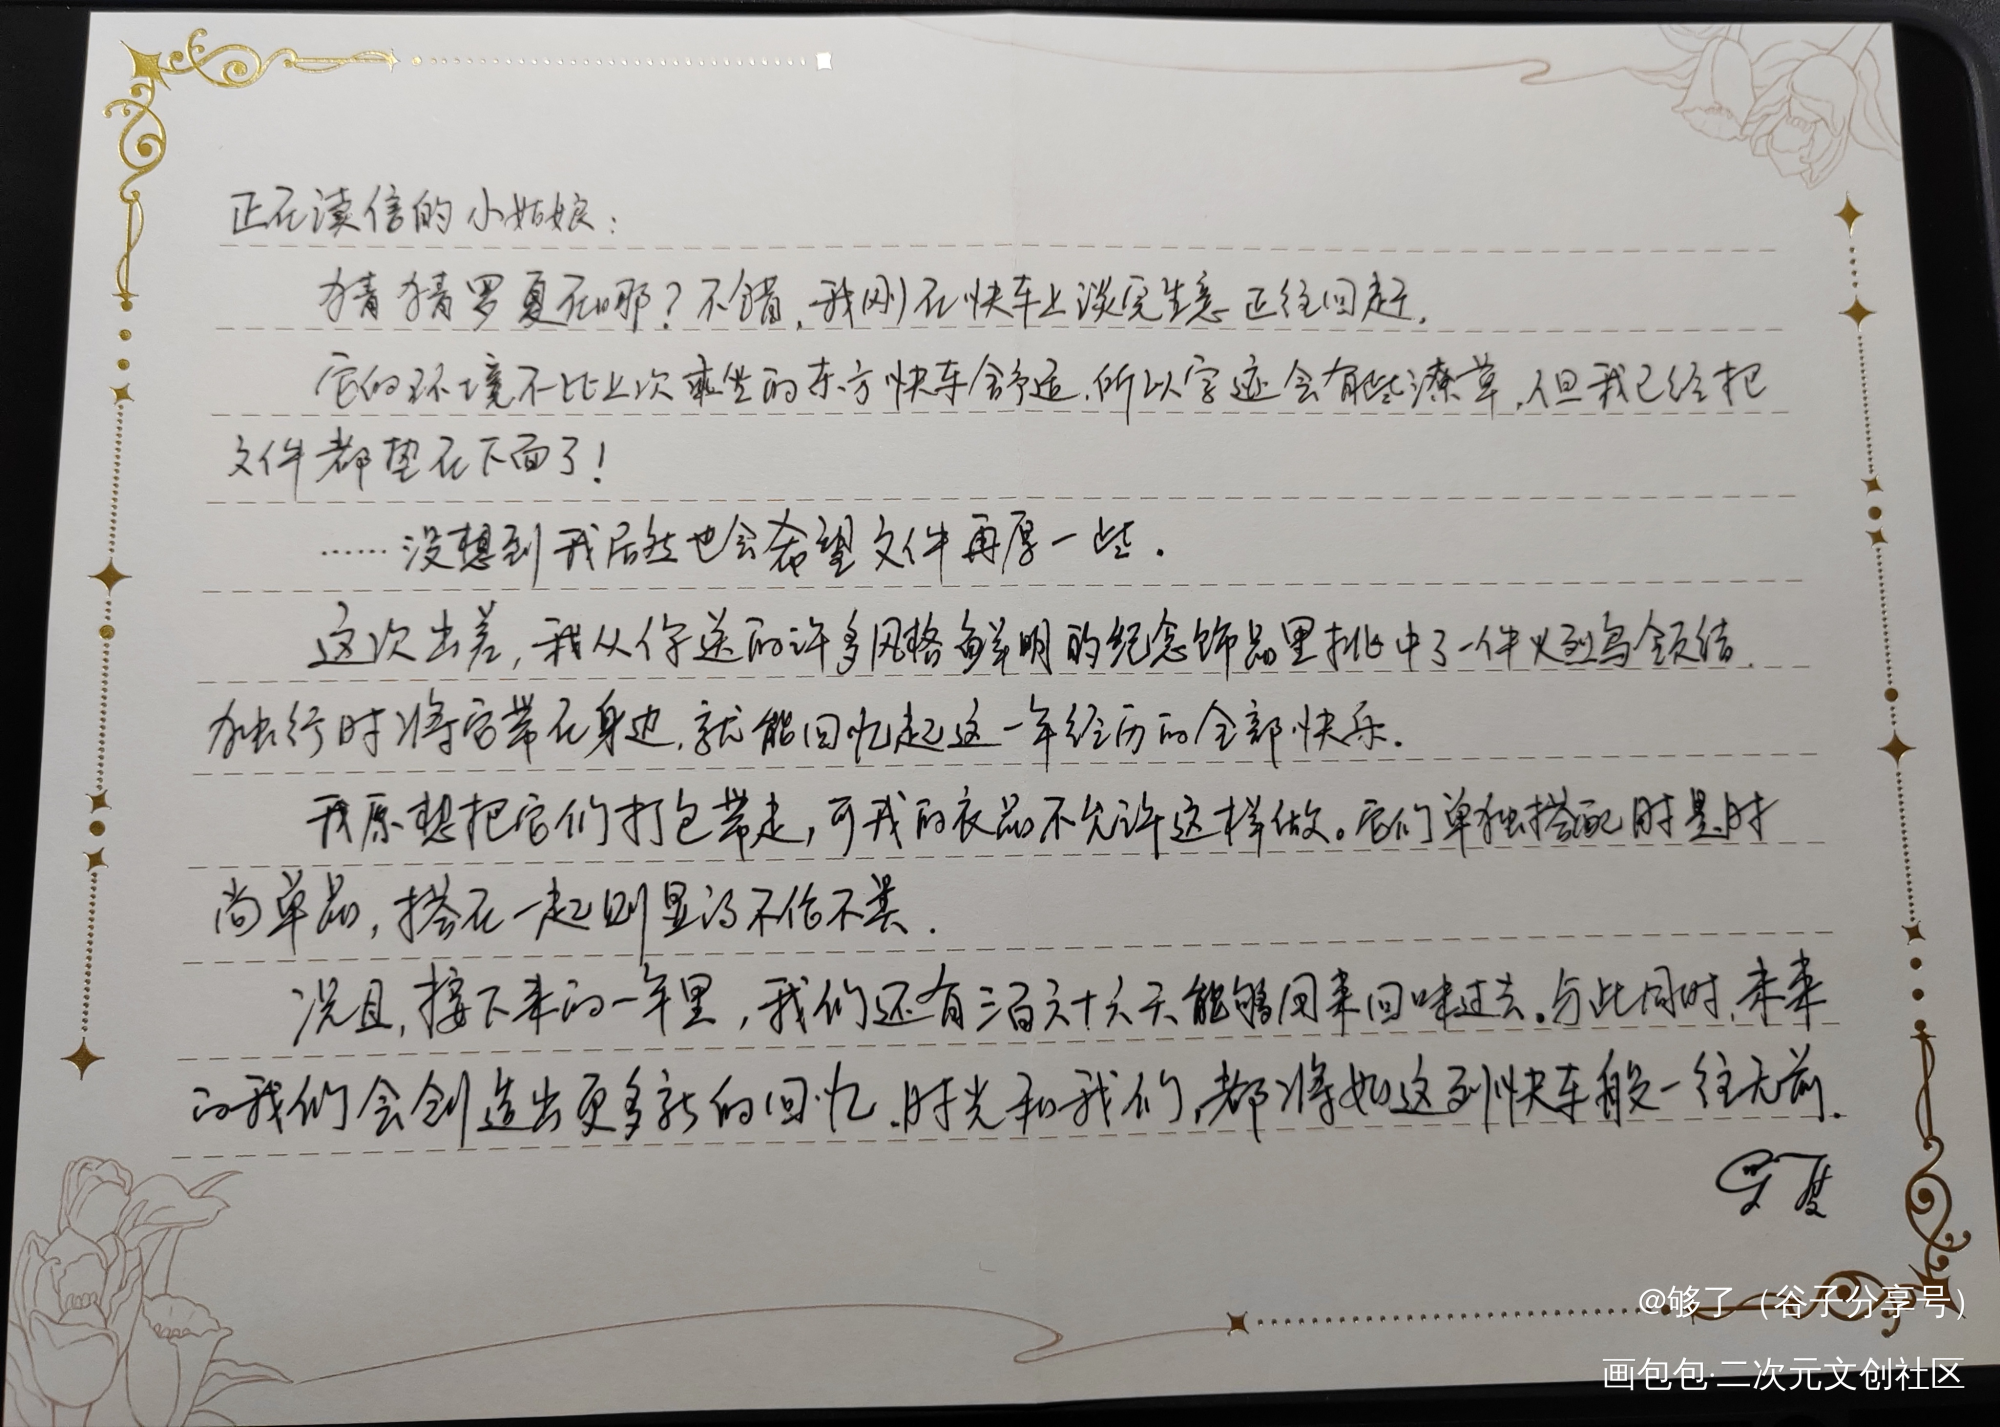 正在读信的小姑娘：
猜猜罗夏在哪？不错，我刚在快车上谈完生意正往回赶。
它的环境不比上次乘坐的东方快车舒适，所以字迹会有些潦草，但我已经把
文件都垫在下面了！
……没想到我居然也会希望文件再厚一些。
这次出差，我从你送的许多风格鲜明的纪念饰品里挑中了一件火烈鸟领结，
独行时将它带在身边，就能回忆起这一年经历的全部快乐。
我原想把它们打包带走，可我的衣品不允许这样做。它们单独搭配时是时
尚单品，搭在一起则显得不伦不类。
况且，接下来的一年里，我们还有三百六十六天能够用来回味过去。与此同时，未来
的我们会创造出更多新的回忆，时光和我们，都将如这列快车般一往无前。
罗夏
@够了（谷子分享号）
画包包·二次元文创社区